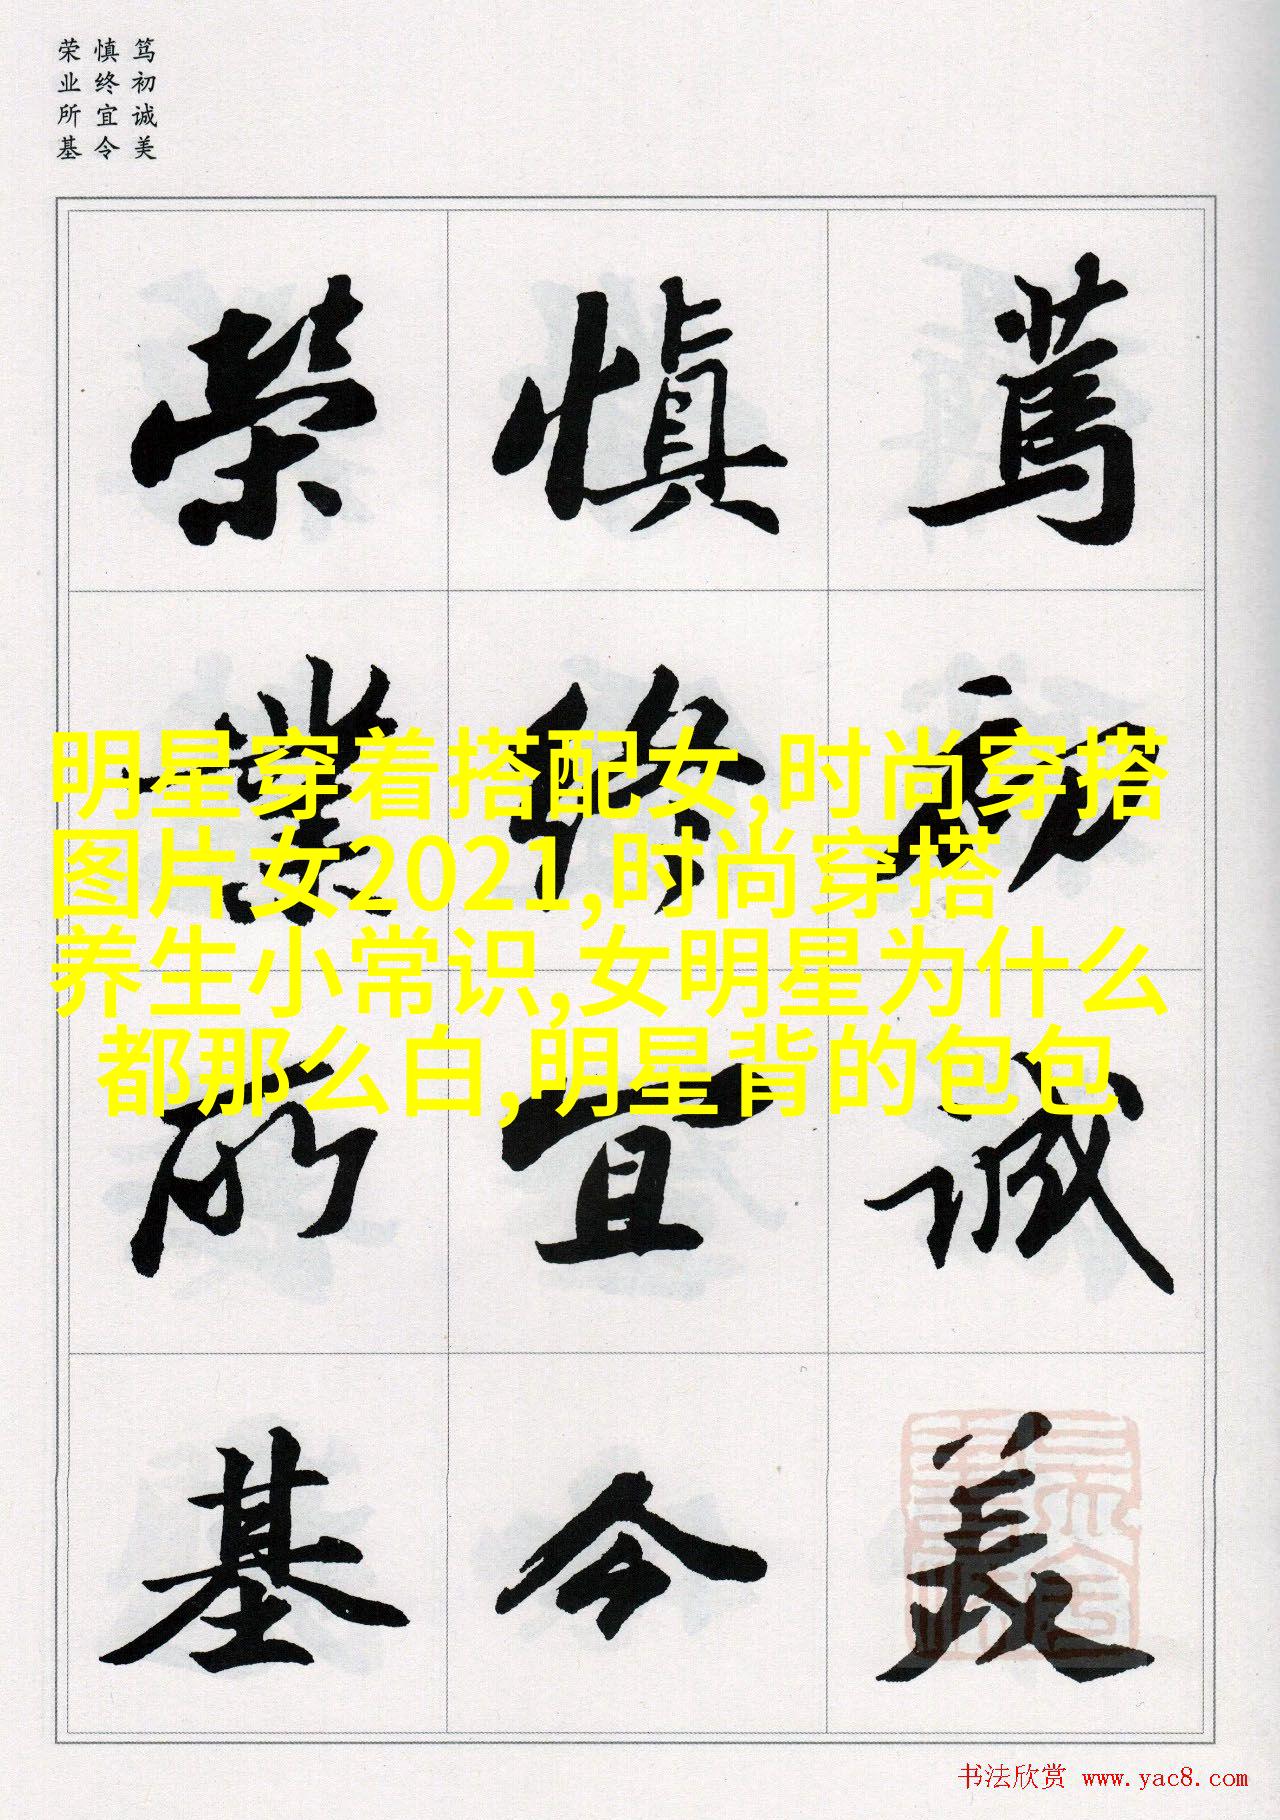 笃初诚美
慎终宜令
荣业所基
篤初誠美
慎終宜令
榮業所基
明星穿着搭配女,时尚穿搭
图片女2021,时尚穿搭
养生小常识,女明星为什么
都那么白,明星背的包包
书法欣赏 www.yac8.com